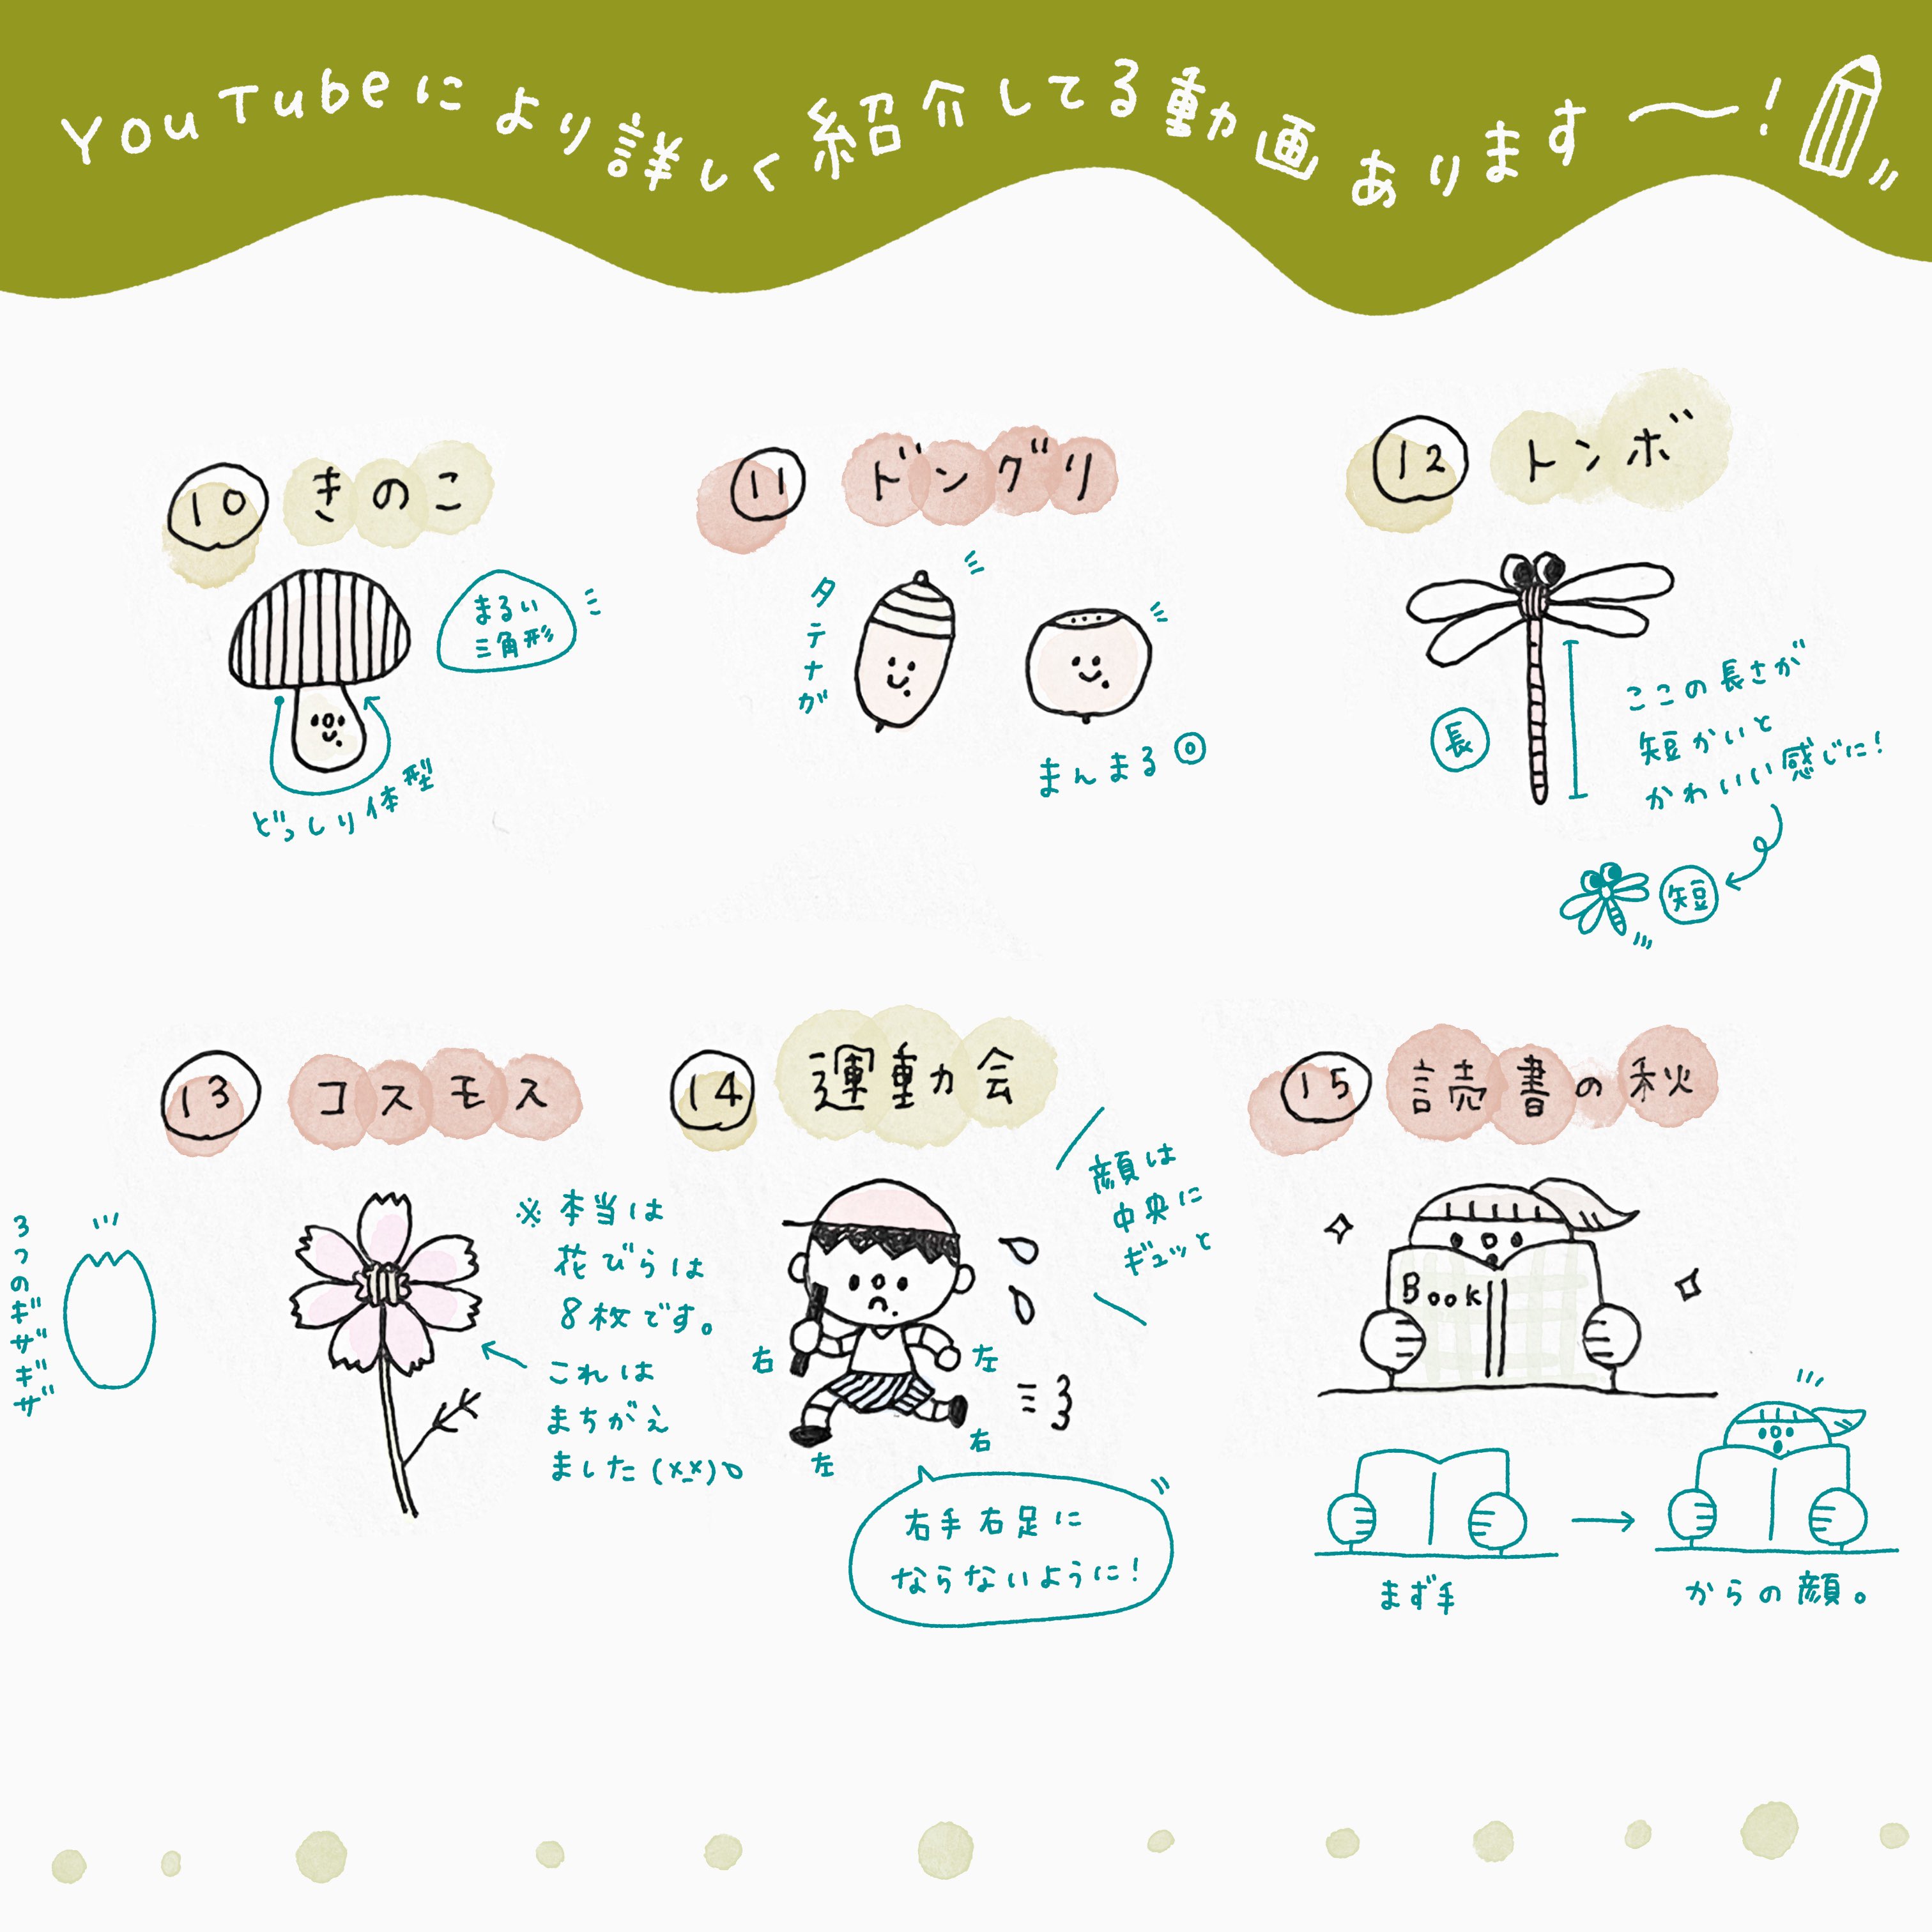 YouTubeにより詳しく紹介してる動画あります〜!
⑩ きのこ
まるい
三角形
どっしり体型
⑪ ドングリ
タテナガ
まんまる◎
⑫ トンボ
長
ここの長さが
短かいと
かわいい感じに!
短
⑬ コスモス
3つのギザギザ
※本当は
花びらは
8枚です。
これは
まちがえ
ました(x_x)
⑭ 運動会
顔は
中央に
ギュッと
右
左
右
左
右手右足に
ならないように!
⑮ 読書の秋
Book
まず手
からの顔。